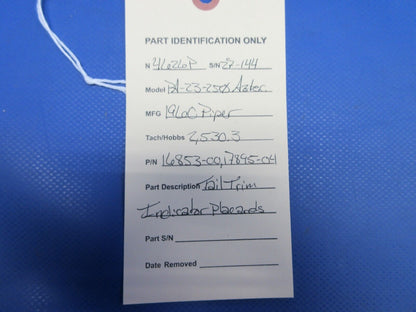 PART IDENTIFICATION ONLY
N 4626P S/N 27-144
Model PA-23-250 Aztec
MFG 1960 Piper
Tach/Hobbs 2,530.3
P/N 16853-00, 17895-04
Part Description Tail Trim
Indicator Placards
Part S/N
Date Removed